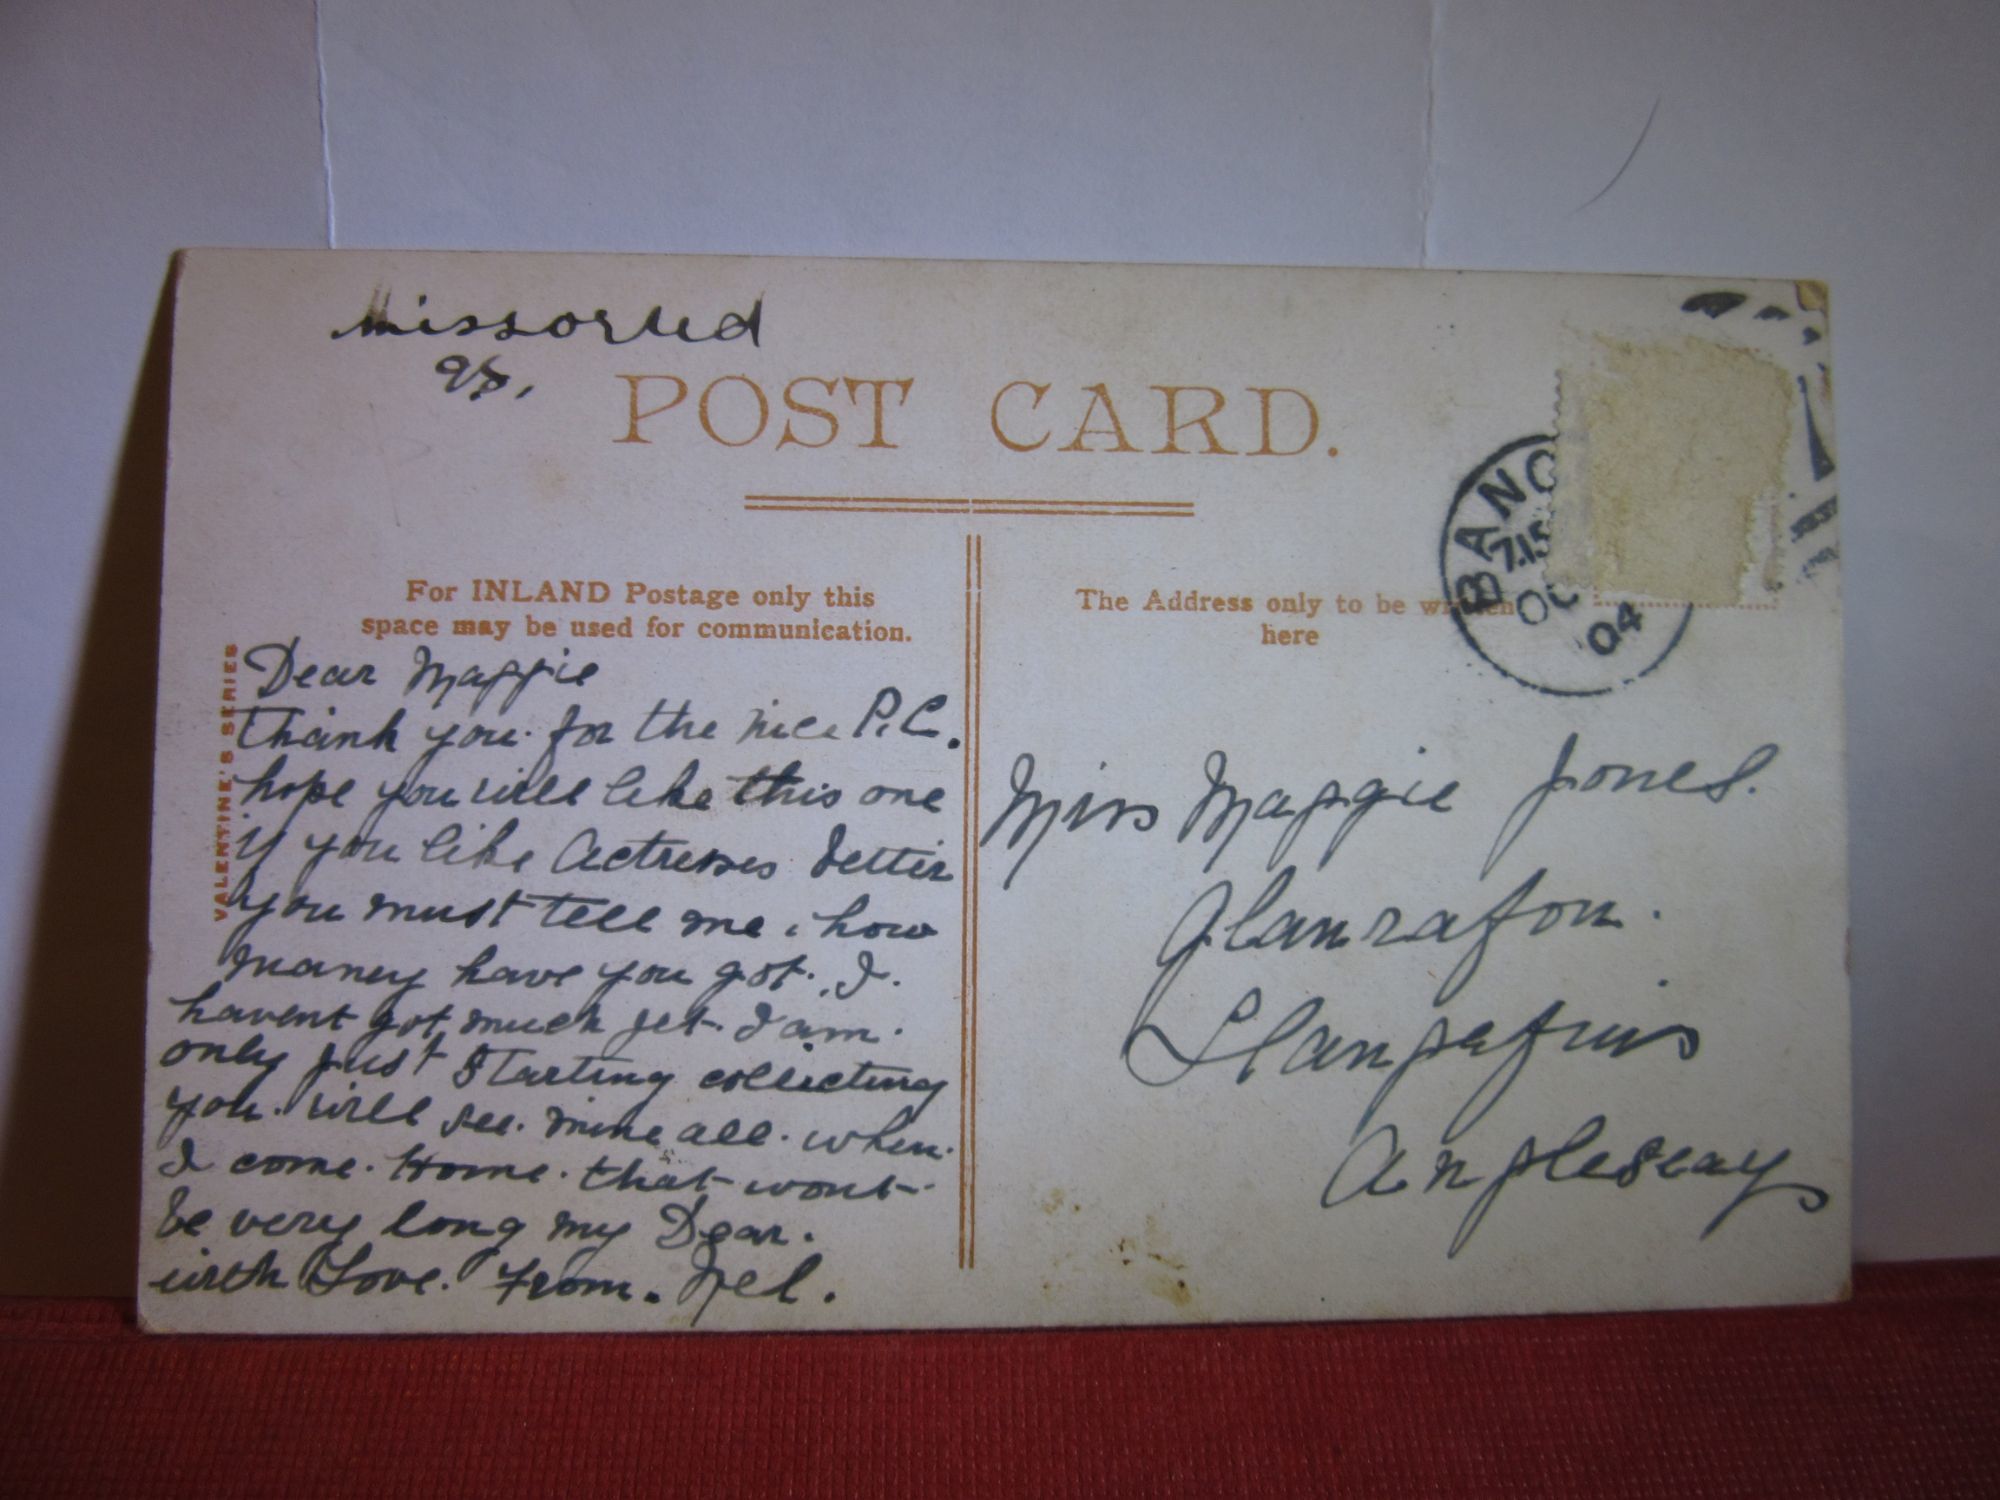 Missorted
POST CARD.
For INLAND Postage only this
space may be used for communication.
The Address only to be written
here
BANG
7.15
OC
04
VALENTINE'S SERIES
Dear Maggie
thank you for the nice P.C.
hope you will like this one
if you like Actresses better
you must tell me. how
maney have you got. I.
havent got much yet. I am.
only just starting collecting
you. will see. mine all. when.
I come. Home. that wont
be very long my Dear.
with Love. From. Nel.
Miss Maggie Jones.
Glanrafon.
Llangefnis
Angleseay